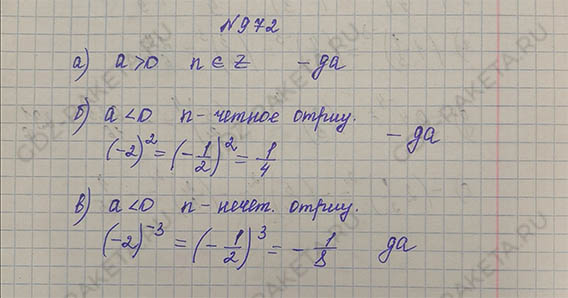 N972
а) a>0 n∈Z – да
б) a<0 n- четное отриц.
(-2)² = (-1/2)² = 1/4 – да
в) a<0 n- нечет. отриц.
(-2)⁻³ = (-1/2)³ = -1/8 да
GDZ-RAKETA.RU